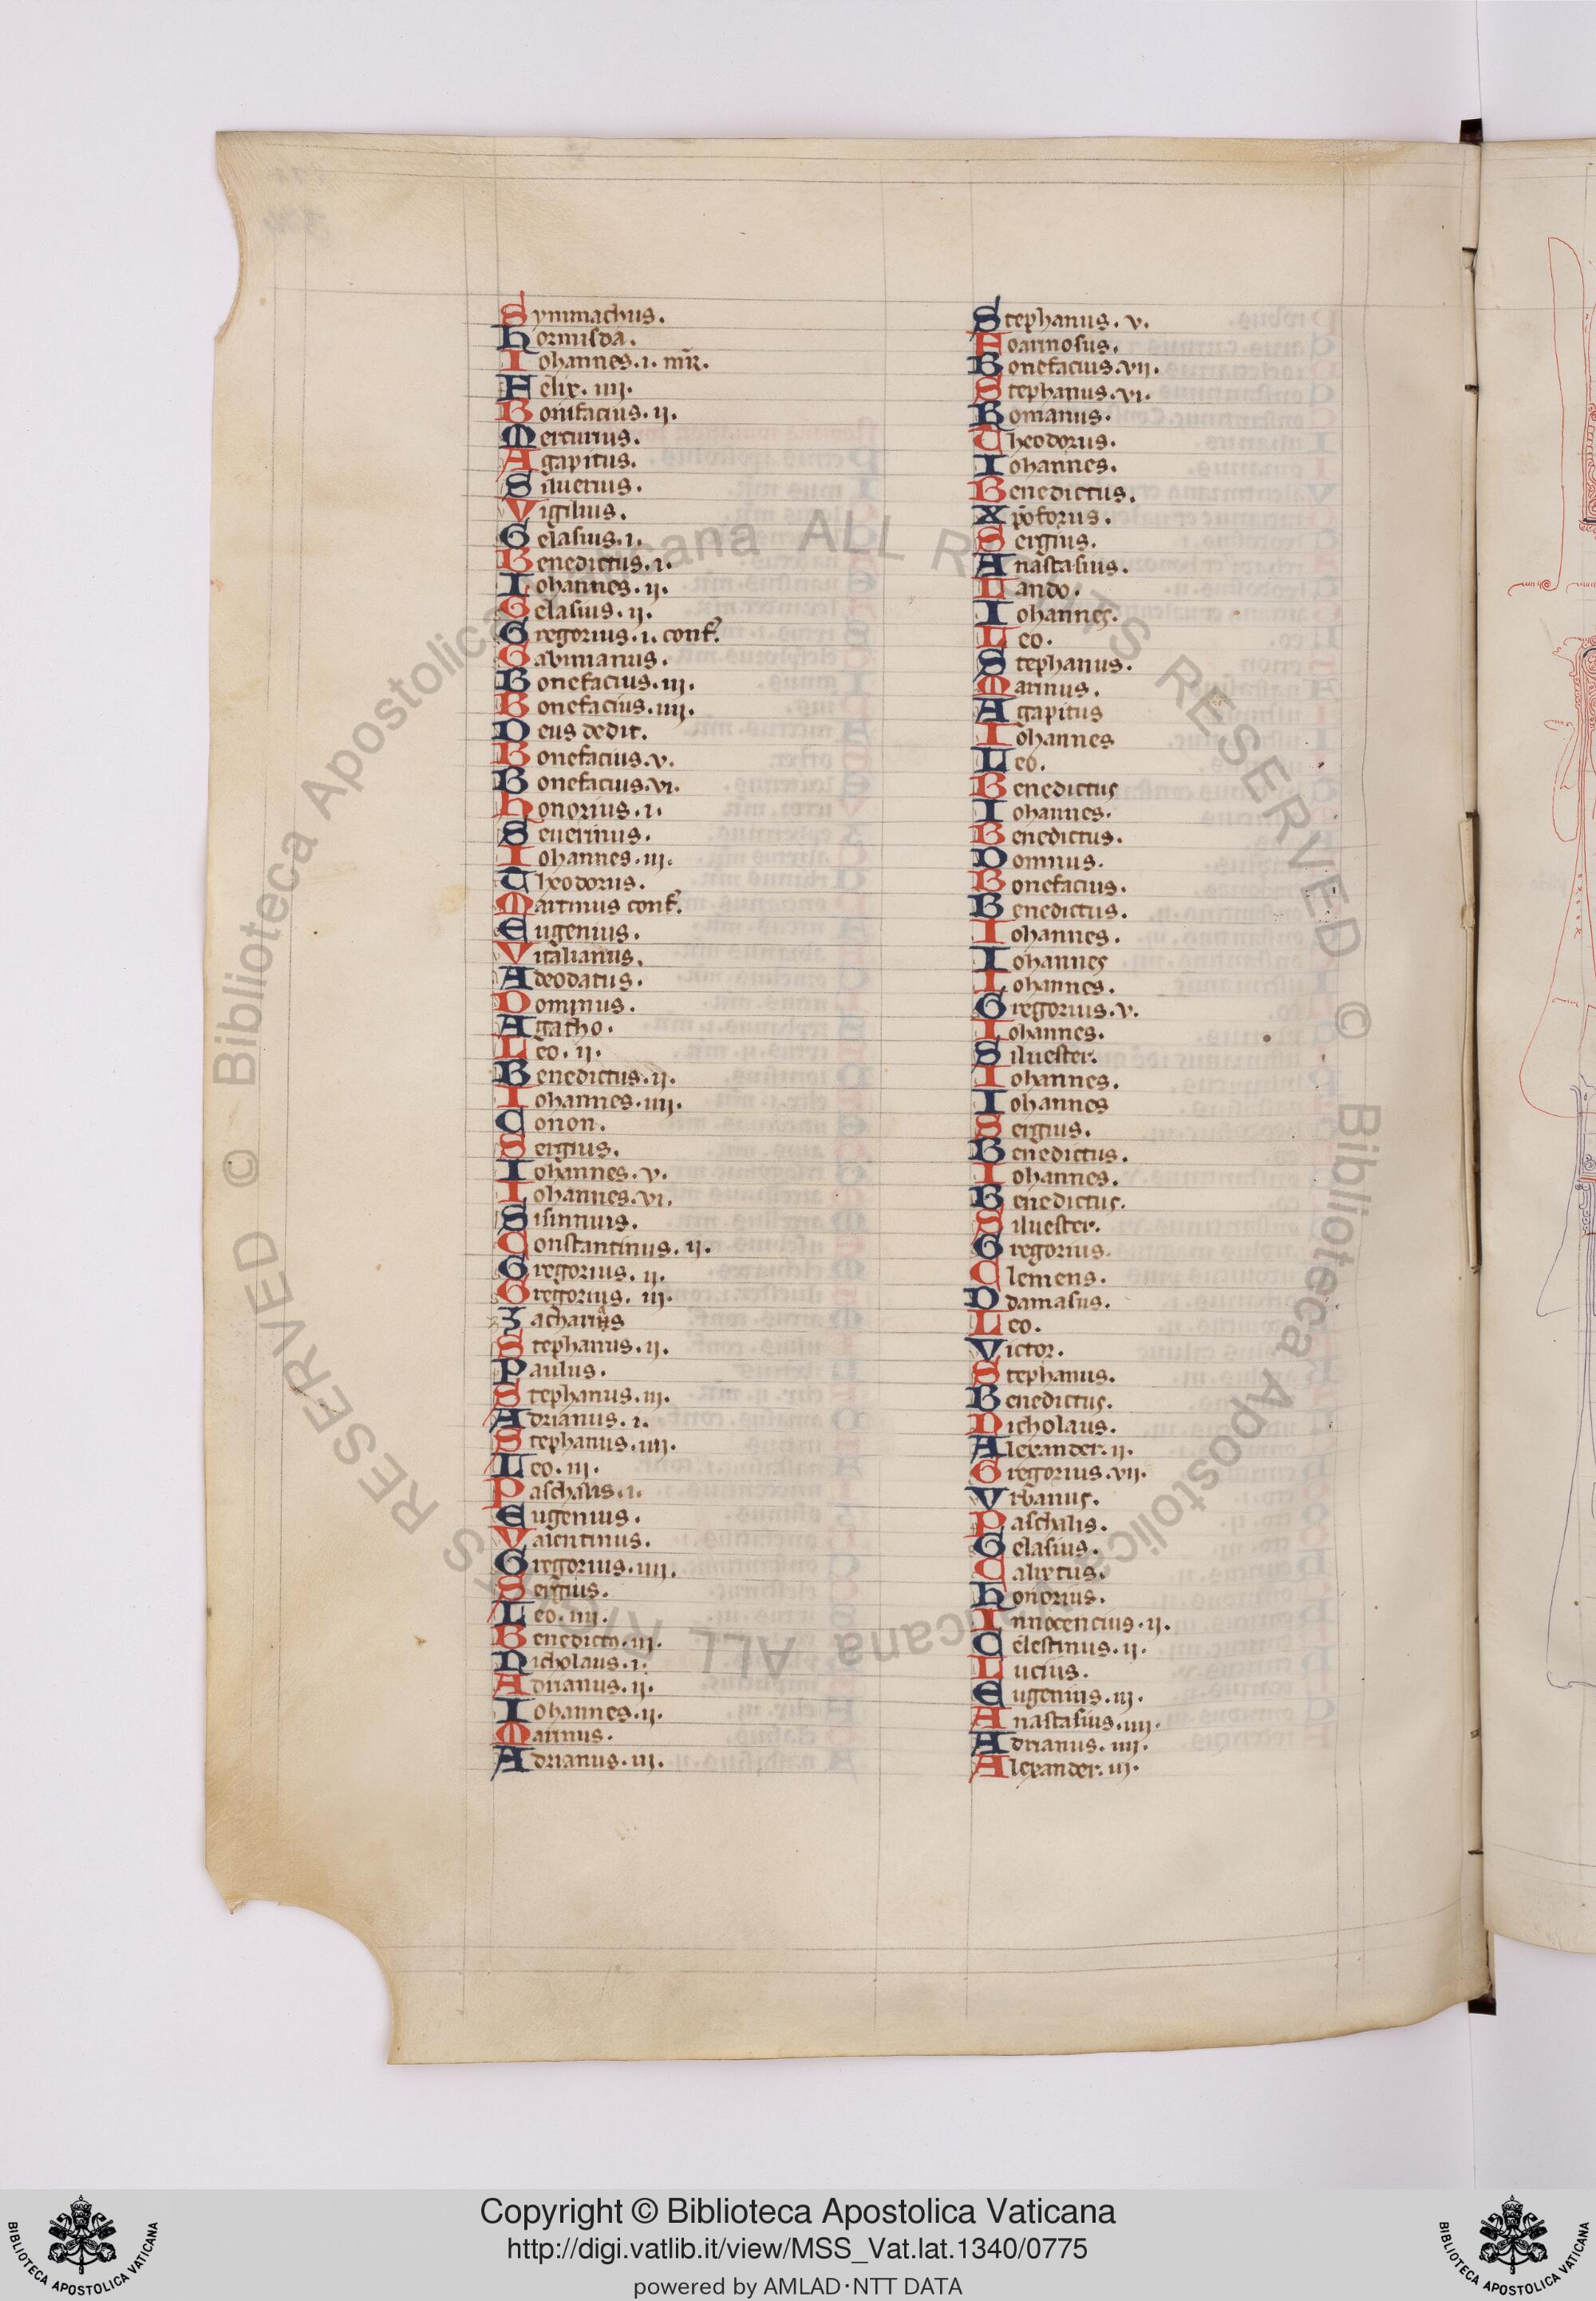 Symmachus.
Hormisda.
Iohannes.i. mr̄.
Felix. iiij.
Bonifacius. ij.
Mercurius.
Agapitus.
Siluerius.
Vigilius.
Gelasius.i.
Benedictus.i.
Iohannes. ij.
Gelasius. ij.
Gregorius.i. conf.
Sauinianus.
Bonefacius. iij.
Bonefacius. iiij.
Deus dedit.
Bonefacius.v.
Bonefacius.vi.
Honorius.i.
Seuerinus.
Iohannes. iij.
Theodorus.
Martinus conf.
Eugenius.
Vitalianus.
Adeodatus.
Domnus.
Agatho.
Leo. ij.
Benedictus. ij.
Iohannes. iiij.
Conon.
Sergius.
Iohannes. v.
Iohannes. vi.
Sisinnius.
Constantinus. ij.
Gregorius. ij.
Gregorius. iij.
Zacharias
Stephanus. ij.
Paulus.
Stephanus. iij.
Adrianus. i.
Stephanus. iiij.
Leo. iij.
Paschalis.i.
Eugenius.
Valentinus.
Gregorius. iiij.
Sergius.
Leo. iiij.
Benedictus. iij.
Nicholaus.i.
Adrianus. ij.
Iohannes. ij.
Marinus.
Adrianus. iij.
Stephanus. v.
Foarmosus.
Bonefacius. vij.
Stephanus. vi.
Romanus.
Theodorus.
Iohannes.
Benedictus.
Xpōforus.
Sergius.
Anastasius.
Lando.
Iohannes.
Leo.
Stephanus.
Marinus.
Agapitus
Iohannes
Leo.
Benedictus
Iohannes.
Benedictus.
Domnus.
Bonefacius.
Benedictus.
Iohannes.
Iohannes
Iohannes.
Gregorius. v.
Iohannes.
Siluester.
Iohannes.
Iohannes
Sergius.
Benedictus.
Iohannes.
Benedictus.
Siluester.
Gregorius.
Clemens.
Ddamasus.
Leo.
Victor.
Stephanus.
Benedictus.
Nicholaus.
Alexander. ij.
Gregorius. vij.
Vrbanus.
Paschalis.
Gelasius.
Calixtus.
Honorius.
Innocencius. ij.
Celestinus. ij.
Lucius.
Eugenius. iij.
Anastasius. iiij.
Adrianus. iiij.
Alexander. iij.
© Biblioteca Apostolica Vaticana ALL RIGHTS RESERVED
© Biblioteca Apostolica Vaticana ALL RIGHTS RESERVED
Copyright © Biblioteca Apostolica Vaticana
http://digi.vatlib.it/view/MSS_Vat.lat.1340/0775
powered by AMLAD·NTT DATA
BIBLIOTECA APOSTOLICA VATICANA
BIBLIOTECA APOSTOLICA VATICANA